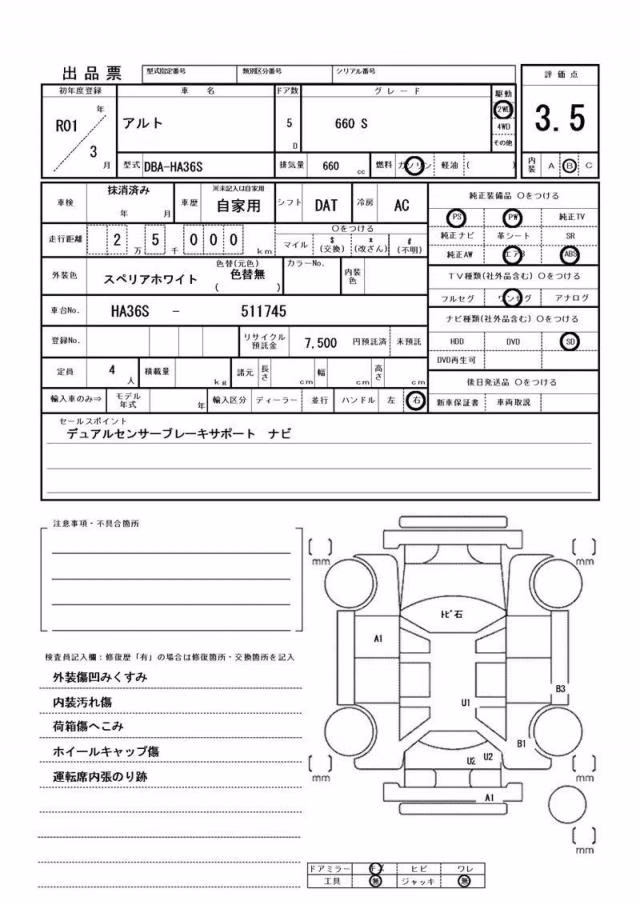 出品票 型式指定番号 類別区分番号 シリアル番号
評価点
初年度登録 車名 ドア数 グレード 駆動
R01 年 アルト 5 D 660 S 2WD 4WD その他
3.5
3 月 型式 DBA-HA36S 排気量 660 cc 燃料 ガソリン 軽油 ( )
内装 A B C
車検 抹消済み 年 月 車歴 ※未記入は自家用 自家用 シフト DAT 冷房 AC
純正装備品 ○をつける
PS PW 純正TV
純正ナビ 革シート SR
純正AW エアB ABS
走行距離 2 万 5 千 0 0 0 km ○をつける
マイル $ (交換) * (改ざん) # (不明)
外装色 スペリアホワイト 色替(元色) 色替無 ( ) カラーNo. 内装色
TV種類(社外品含む) ○をつける
フルセグ ワンセグ アナログ
車台No. HA36S - 511745
ナビ種類(社外品含む) ○をつける
HDD DVD SD
DVD再生可
登録No. リサイクル預託金 7,500 円預託済 未預託
定員 4 人 積載量 kg 諸元 長さ cm 幅 cm 高さ cm
後日発送品 ○をつける
新車保証書 車両取説
輸入車のみ⇒ モデル年式 年 輸入区分 ディーラー 並行 ハンドル 左 右
セールスポイント
デュアルセンサーブレーキサポート ナビ
注意事項・不具合箇所
[ ] mm
[ ] mm
トビ石
A1
検査員記入欄：修復歴「有」の場合は修復箇所・交換箇所を記入
外装傷凹みくすみ
内装汚れ傷
荷箱傷へこみ
ホイールキャップ傷
運転席内張のり跡
B3
U1
B1
U2 U2
[ ] mm
[ ] mm
A1
[ ] mm
ドアミラー ヒビ ワレ
工具 無 ジャッキ 無